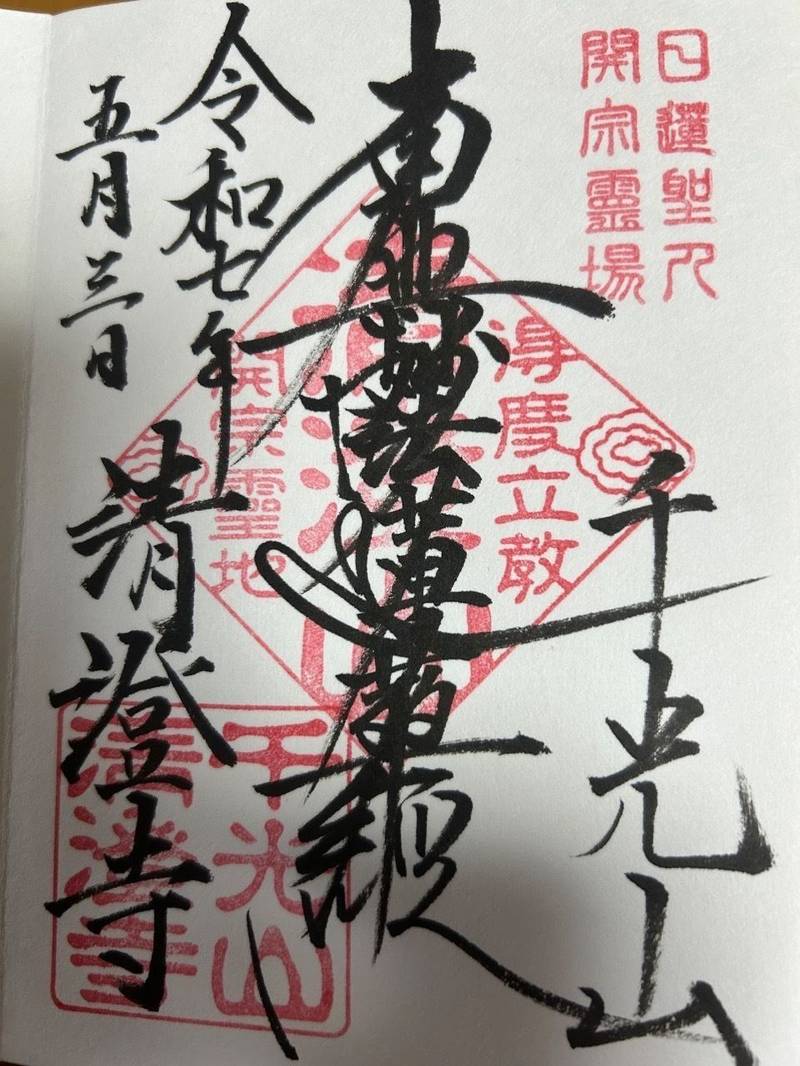 日蓮聖人
開宗霊場
千光山
得度立教
南無妙法蓮華経
開宗霊地
令和七年
五月三日
清澄寺
千光山
清澄寺